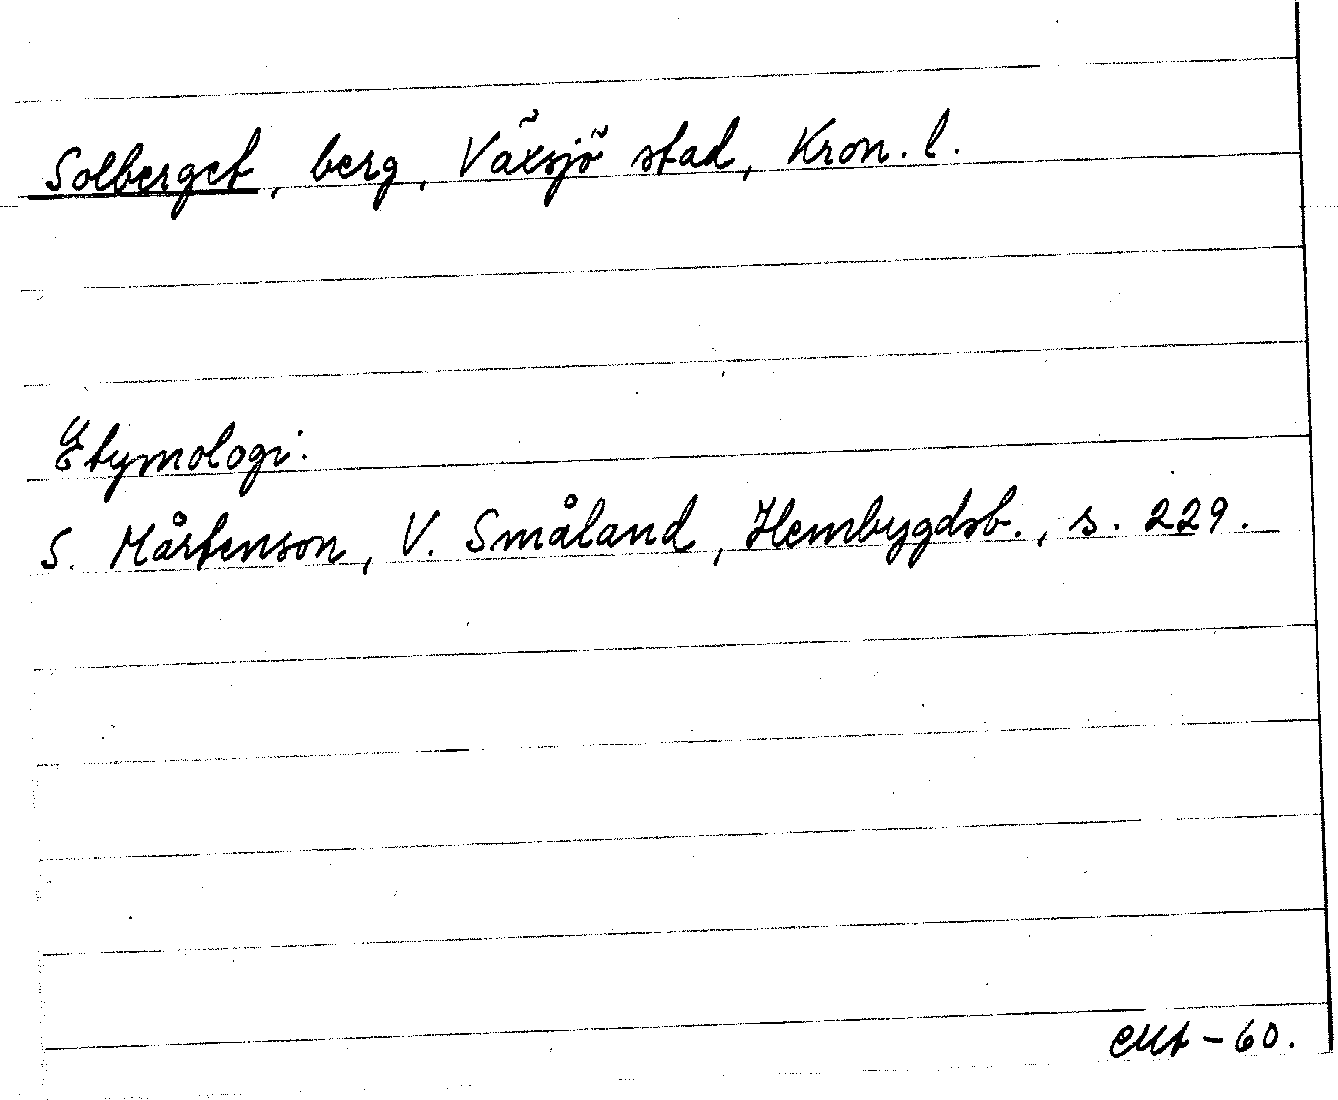 Solberget, berg, Växjö stad, Kron. l.
Etymologi:
S. Mårtenson, V. Småland, Hembygdsb., s. 229.
- 60.